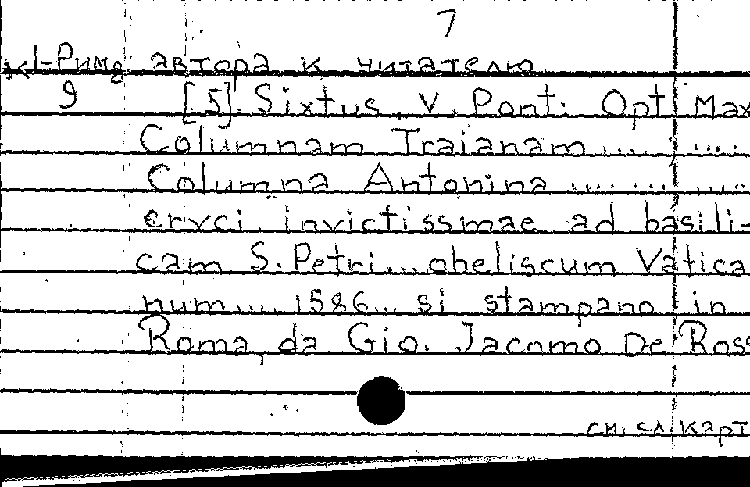 7
XI-Рим2 автора к читателю
9 [5]. Sixtus V. Pont. Opt. Max
Columnam Traianam .... ....
Columna Antonina .... .... ....
crvci invictissmae ad basili-
cam S. Petri... obeliscum Vatica
num.... 1586.. si stampano in
Roma, da Gio. Jacomo De Ross
см. сл. карт